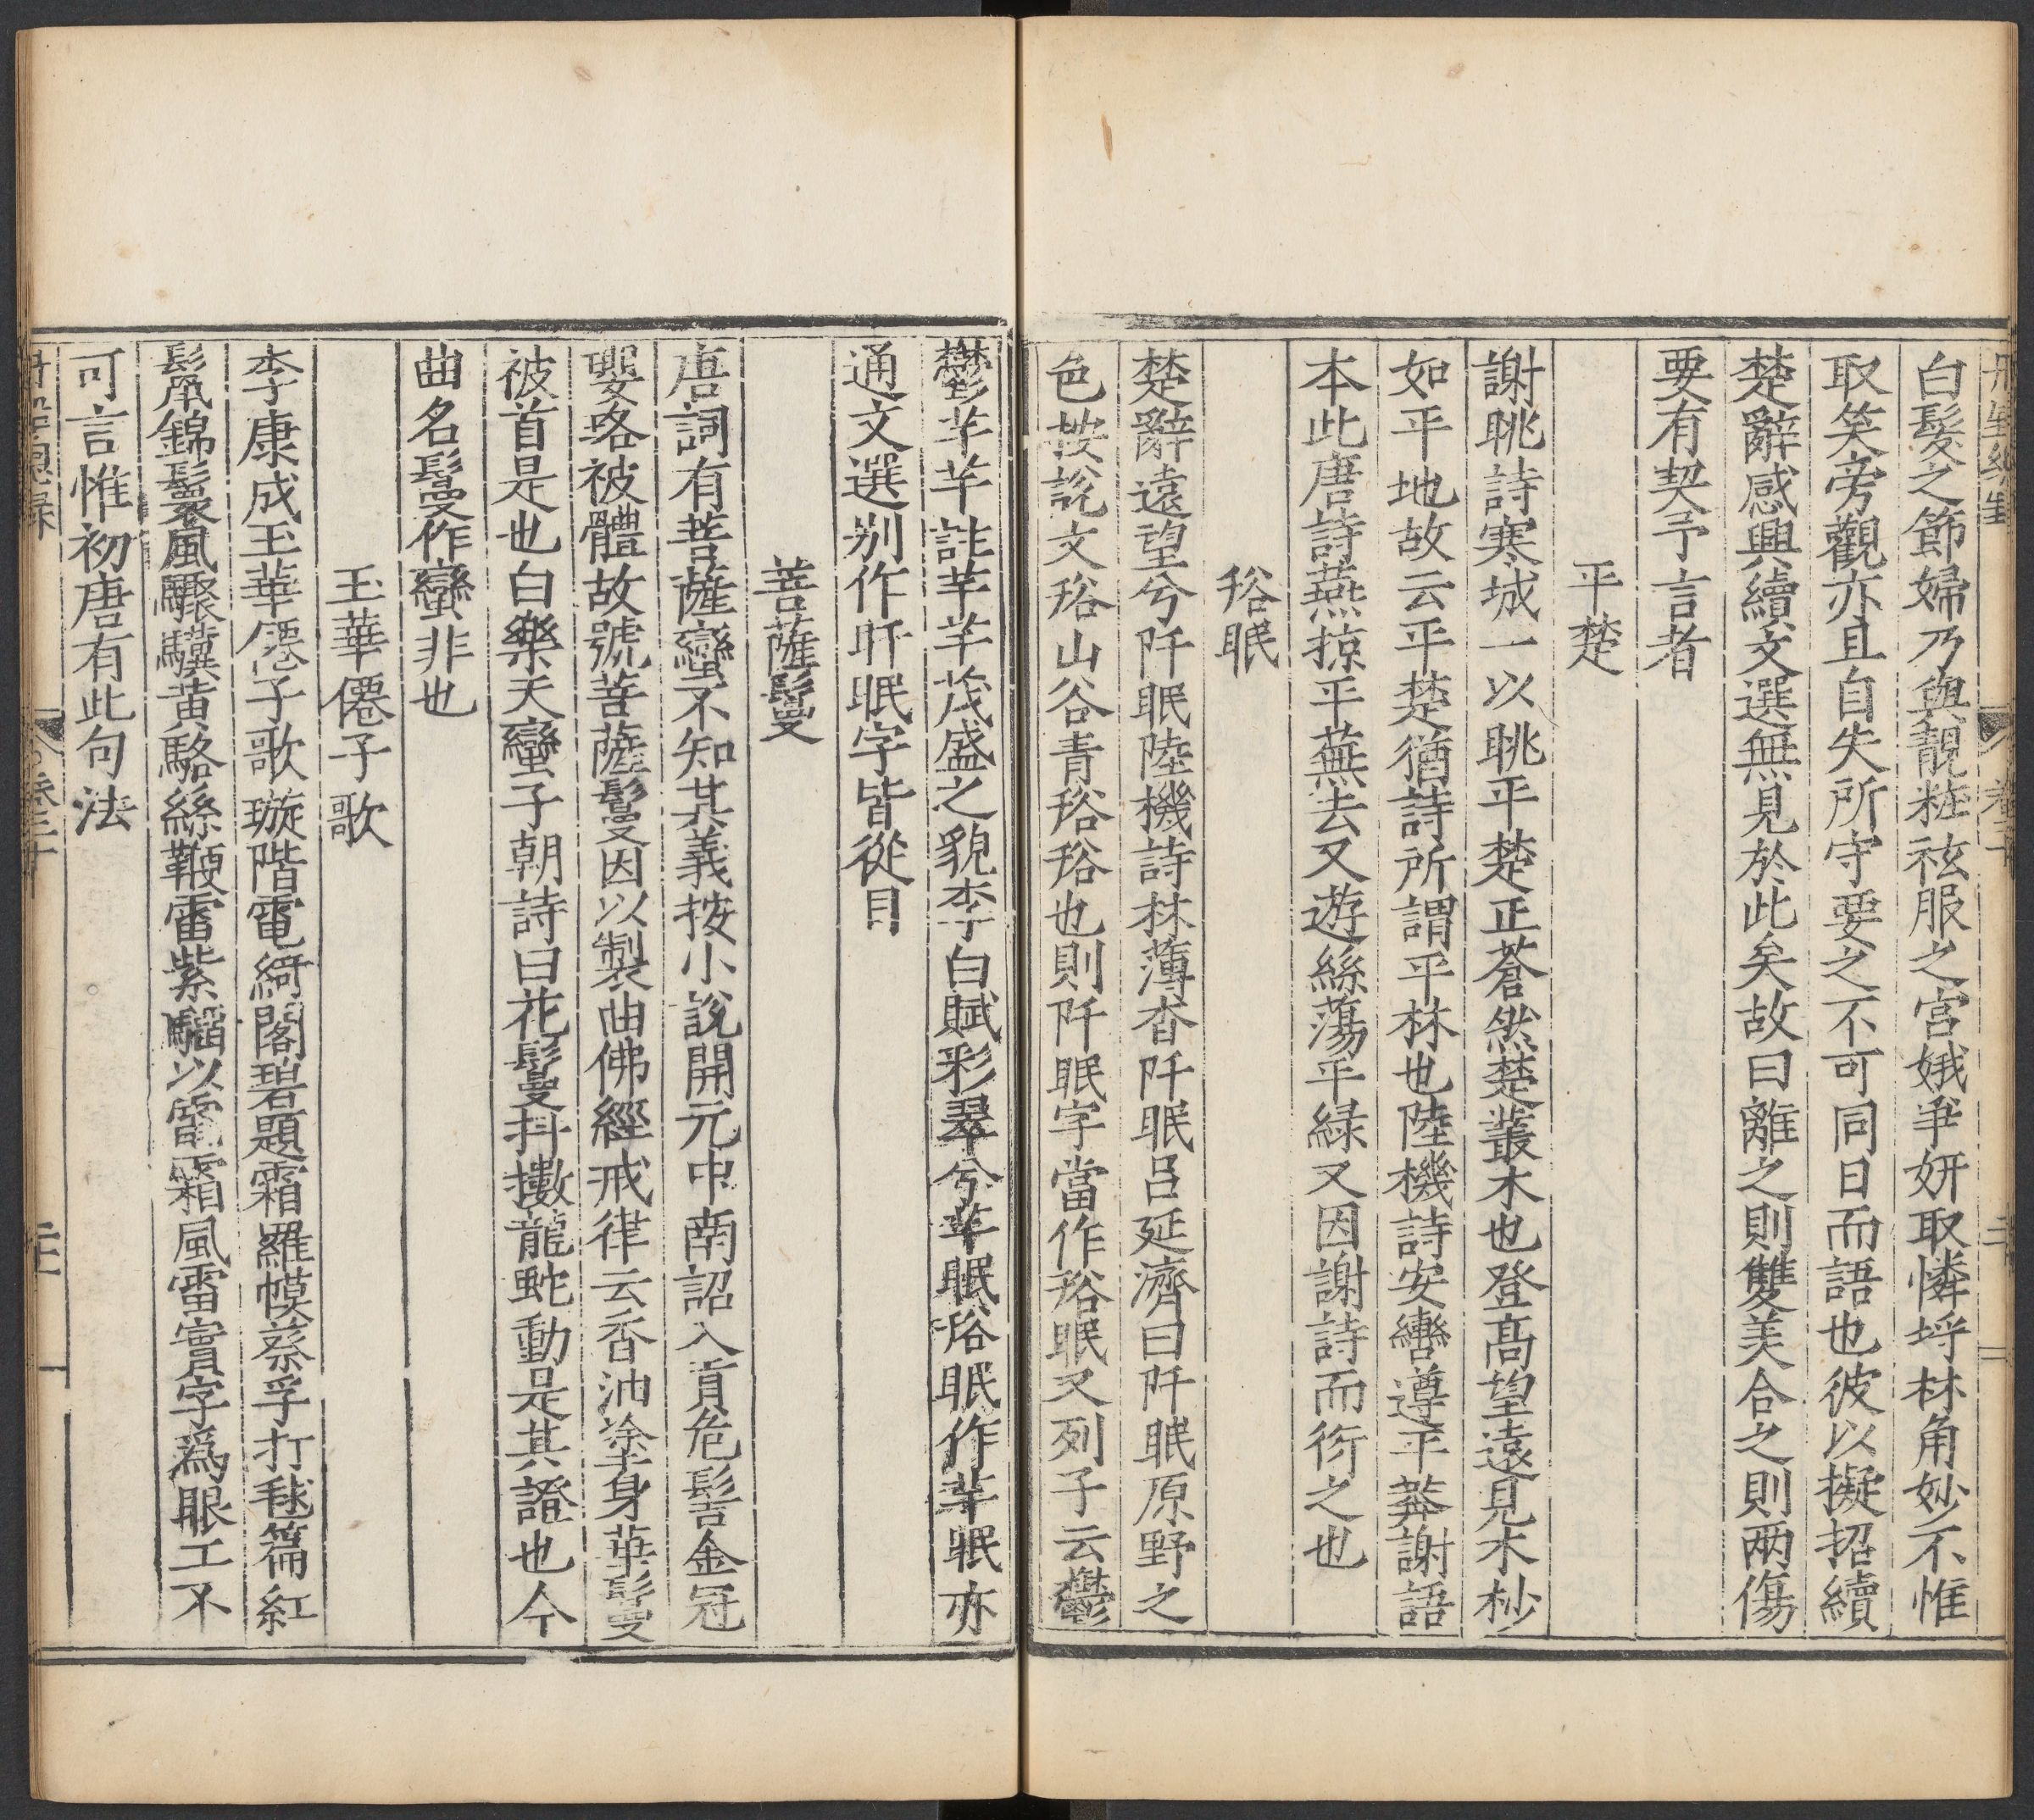 白髮之節婦乃與靚粧袨服之宮娥爭妍取憐埒材角妙不惟
取笑旁觀亦且自失所守要之不可同日而語也彼以擬招續
楚辭感興續文選無見於此矣故曰離之則雙美合之則兩傷
要有契予言者
平楚
謝眺詩寒城一以眺平楚正蒼然楚叢木也登高望遠見木杪
如平地故云平楚猶詩所謂平林也陸機詩安轡遵平莽謝語
本此唐詩燕掠平蕪去又遊絲蕩平綠又因謝詩而衍之也
谸眠
楚辭遠望兮阡眠陸機詩林薄杳阡眠呂延濟曰阡眠原野之
色按說文谸山谷青谸谸也則阡眠字當作谸眠又列子云鬱
鬱芊芊註芊芊茂盛之貌李白賦彩翠兮芊眠谸眠作芊眠亦
通文選別作盰眠字皆從目
菩薩鬘
唐詞有菩薩蠻不知其義按小說開元中南詔入貢危髻金冠
瓔珞被體故號菩薩鬘因以製曲佛經戒律云香油塗身華鬘
被首是也白樂天蠻子朝詩曰花鬘抖擻龍蛇動是其證也今
曲名鬘作蠻非也
玉華僊子歌
李康成玉華僊子歌璇階電綺閣碧題霜羅幙蔡孚打毬篇紅
鬃錦鬘風騄驥黃駱絲鞭雷紫騮以電霜風雷實字爲眼工不
可言惟初唐有此句法